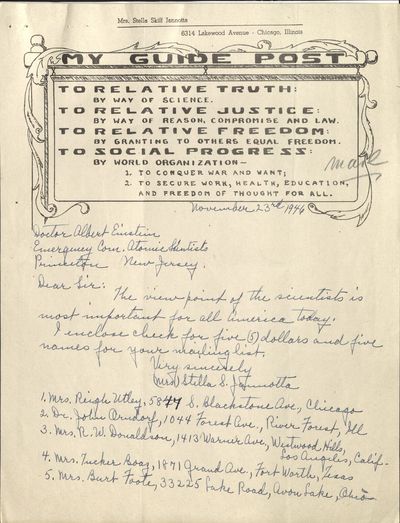 Mrs. Stella Skiff Jannotta
6314 Lakewood Avenue - Chicago, Illinois
MY GUIDE POST
TO RELATIVE TRUTH:
BY WAY OF SCIENCE.
TO RELATIVE JUSTICE:
BY WAY OF REASON, COMPROMISE AND LAW.
TO RELATIVE FREEDOM:
BY GRANTING TO OTHERS EQUAL FREEDOM.
TO SOCIAL PROGRESS:
BY WORLD ORGANIZATION~
1. TO CONQUER WAR AND WANT;
2. TO SECURE WORK, HEALTH, EDUCATION,
AND FREEDOM OF THOUGHT FOR ALL.
November 23rd 1946
Doctor Albert Einstein
Emergency Com. Atomic Scientists
Princeton New Jersey.
Dear Sir:
The view point of the scientists is
most important for all America today.
I enclose check for five (5) dollars and five
names for your mailing list.
Very sincerely
(Mrs) Stella S. Jannotta
1. Mrs. Utley, 5844 S. Blackstone Ave, Chicago
2. Dr. John Arndorf, 1044 Forest Ave., River Forest, Ill
3. Mrs. R. W. Donaldson, 1413 Warner Ave, Westwood Hills,
Los Angeles, Calif-
4. Mrs. Tucker Boaz, 1871 Grand Ave., Fort Worth, Texas
5. Mrs. Burt Foote, 33225 Lake Road, Avon Lake, Ohio